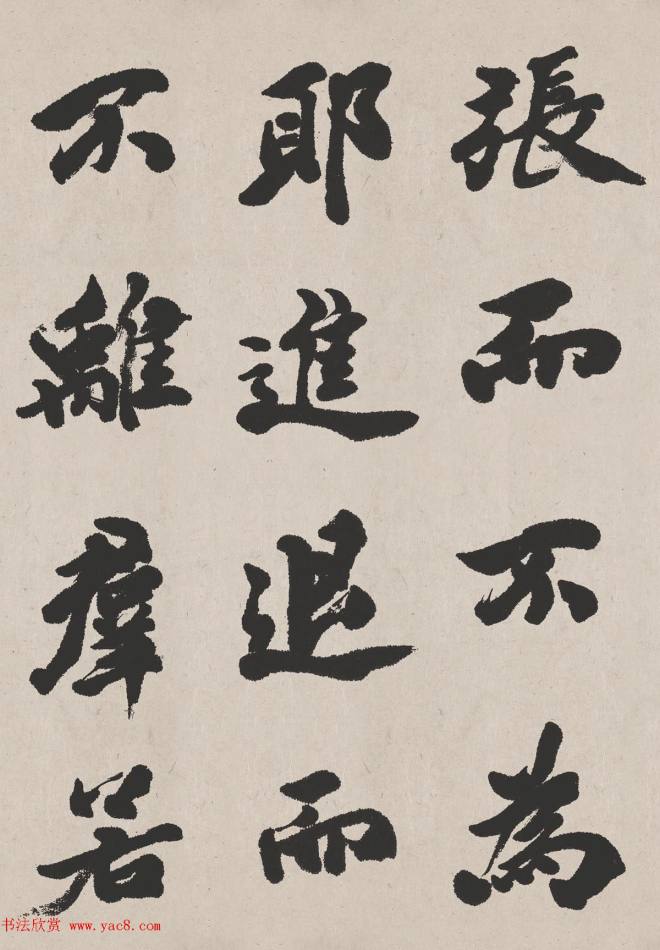 張而不為
耶進退而
不離羣若
书法欣赏 www.yac8.com